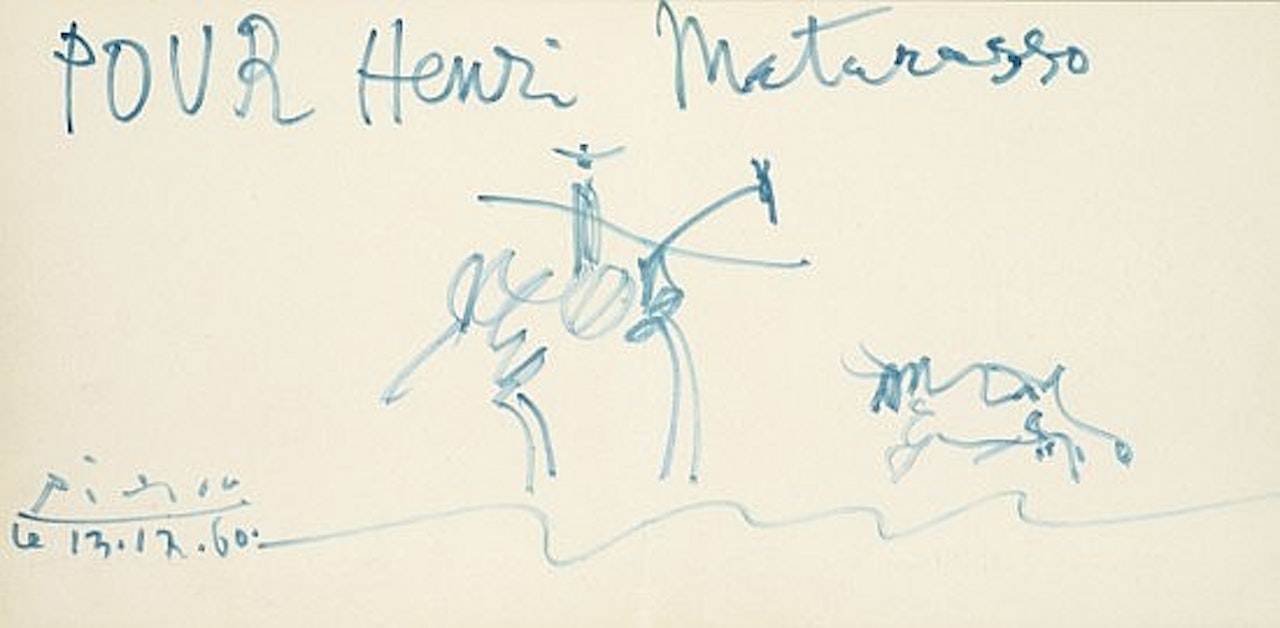 POUR Henri Matarasso
Picasso
le 13.12.60.